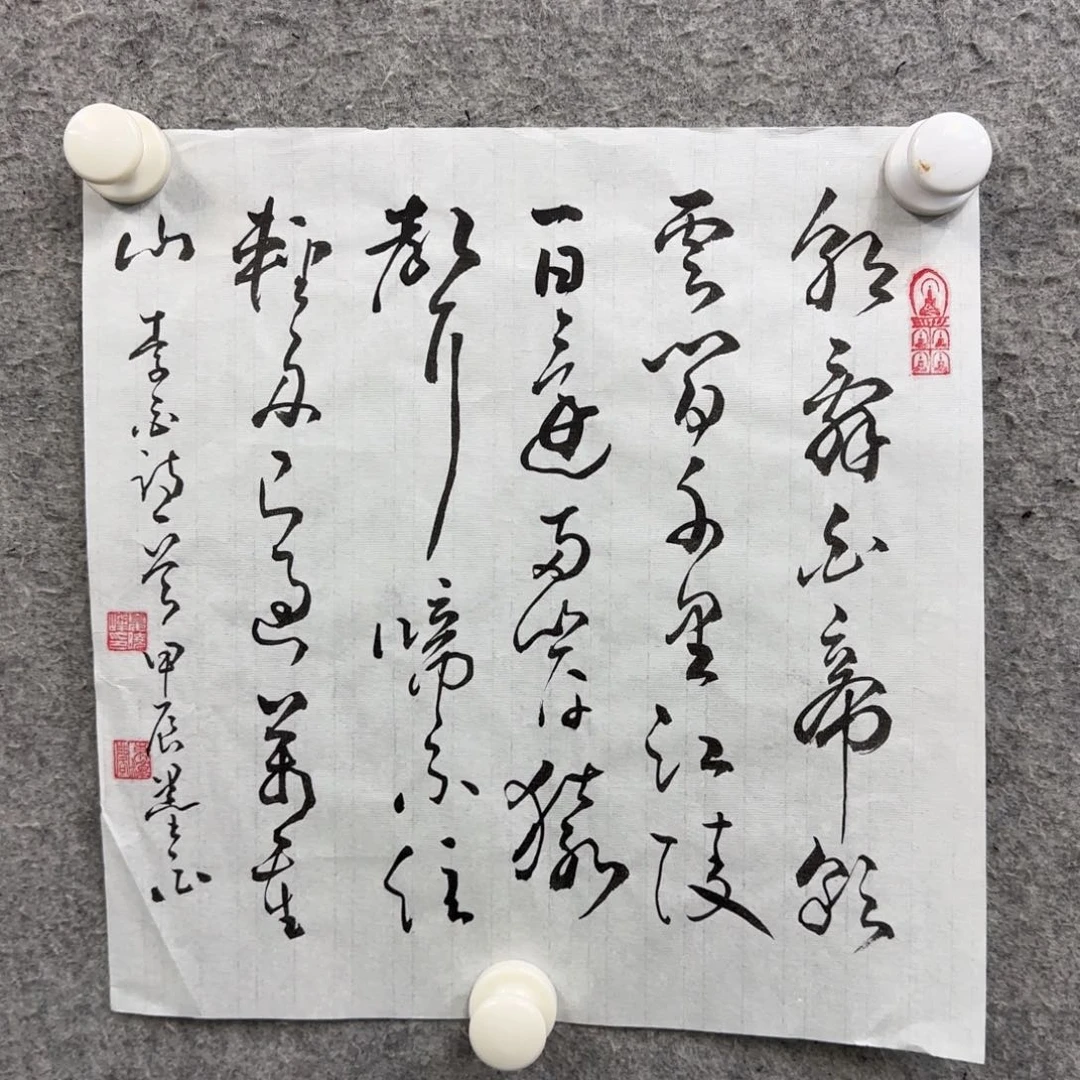 朝辭白帝彩
雲間千里江陵
一日還兩岸猿
聲啼不住
輕舟已過萬重
山
李白詩一首甲辰